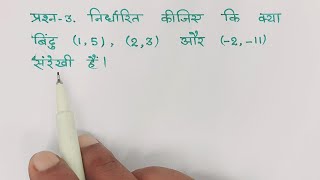 प्रश्न-3. निर्धारित कीजिए कि क्या
बिंदु (1,5), (2,3) और (-2,-11)
संरेखी हैं।